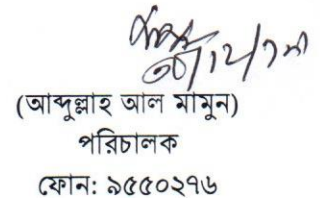 (আব্দুল্লাহ আল মামুন)
পরিচালক
ফোন: ৯৫৫০২৭৬